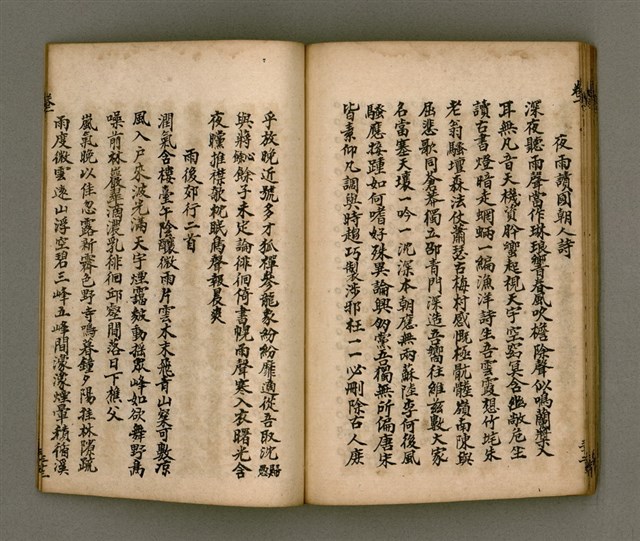 夜雨讀國朝人詩
深夜聽雨聲當作琳琅響春風吹檐除聲似鳴蘭槳又
耳無凡音天機資肸蠁起視天宇空窈冥含幽敞危坐
讀古書燈暗走蝄蜽一編漁洋詩生吾雲霞想竹垞朱
老翁騷壇森法仗蕭瑟古梅村感慨極骯髒嶺南陳與
屈悲歌同蒼莽獨立邵青門深造吾嚮往維茲數大家
名當塞天壤一吟一沈深本朝應無兩蘇陸李何後風
騷應接踵如何嗜好殊異論興朋黨吾獨無所偏唐宋
皆素仰凡調與時趨巧製涉邪枉一一必刪除古人庶
乎放晚近號多才狐禪參龍象紛紛靡適從吾取沈歸愚
與蔣蚓餘子未定論徘徊倚書幌雨聲寒入衣曙光含
夜矘推襟欹枕眠鳥聲報晨爽
雨後郊行二首
潤氣含樓臺午陰釀微雨片雲木末飛青山粲可數凉
風入戶來波光滿天宇煙靄欻動搖眾峰如欲舞野鳥
噪前林巖翠滴濃乳徘徊邱壑間落日下樵父
嵐氣晚以佳忽露新霽色野寺鳴暮鐘夕陽挂林隙疏
雨度微雲遠山浮空碧三峰五峰間濛濛煙暈積倚溪
卷二
卷二